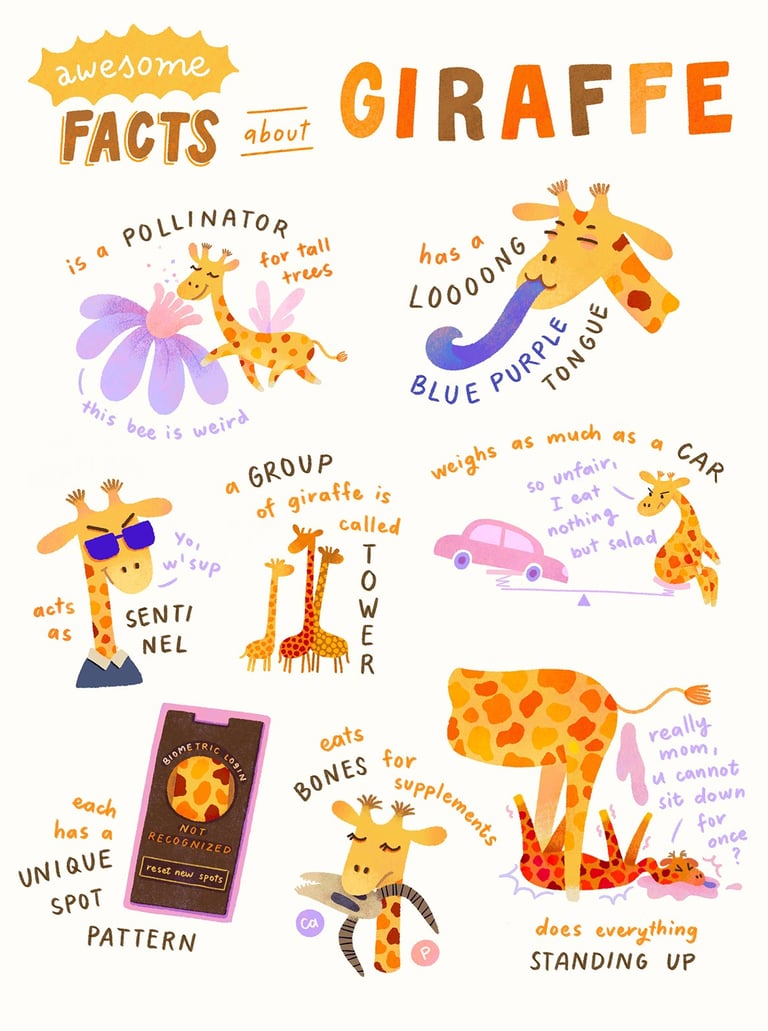 awesome
FACTS about GIRAFFE
is a POLLINATOR
for tall
trees
this bee is weird
has a
LOOOONG
BLUE PURPLE
TONGUE
acts
as
SENTI
NEL
yo,
w'sup
a GROUP
of giraffe is
called
TOWER
weighs as much as a CAR
so unfair,
I eat
nothing
but salad
each
has a
UNIQUE
SPOT
PATTERN
BIOMETRIC LOGIN
NOT
RECOGNIZED
reset new spots
eats
BONES for
supplements
Ca
P
really
mom,
u cannot
sit down
for
once
?
does everything
STANDING UP